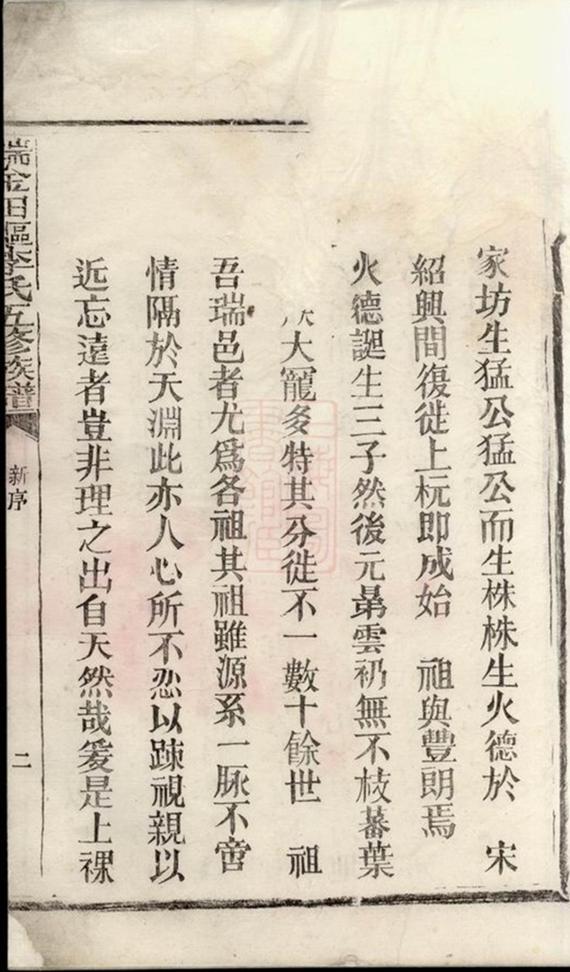 家坊生猛公猛公而生株株生火德於　宋
紹興間復從上杭即成始　祖與豐朗焉
火德誕生三子然後元昴雲礽無不枝蕃葉
大寵多特其分徙不一數十餘世　祖
吾瑞邑者尤爲各祖其祖雖源系一脉不啻
情隔於天淵此亦人心所不忍以踈視親以
近忘遠者豈非理之出自天然哉爰是上祼
瑞金田區李氏五修族譜
新序
二